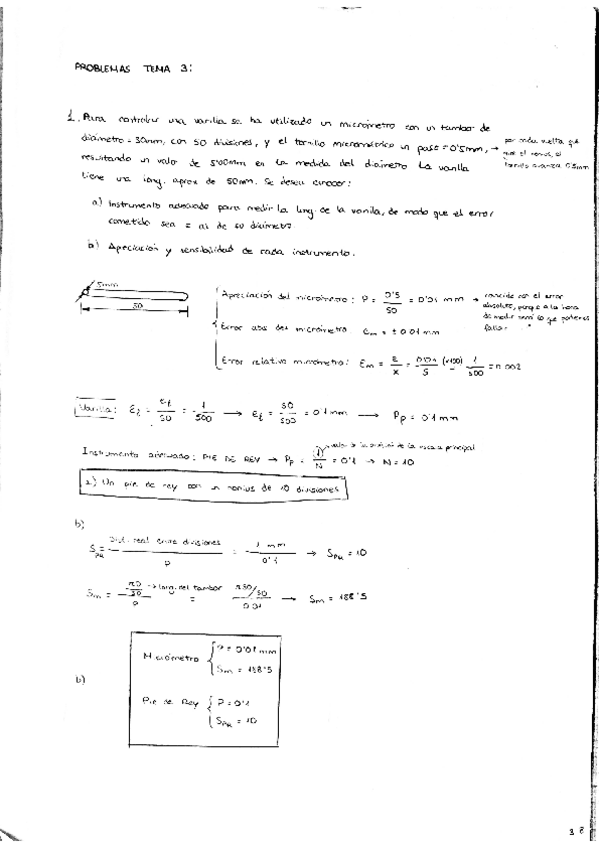 PROBLEMAS TEMA 3:
1. Para controlar una varilla se ha utilizado un micrómetro con un tambor de
diámetro = 30mm, con 50 divisiones, y el tornillo micrométrico un paso = 0'5mm, → por cada vuelta que
resultando un valor de 5'00mm en la medida del diámetro. La varilla
tornillo avanza 0.5mm
tiene una long. aprox de 50mm. Se desea conocer:
a) Instrumento adecuado para medir la long. de la varilla, de modo que el error
cometido sea = al de su diámetro
b) Apreciación y sensibilidad de cada instrumento.
5mm
50
Apreciación del micrómetro: P = 0'5/50 = 0'01 mm → coincide con el error
absoluto, porque a la hora
de medir será lo que podemos
fallar
Error abs del micrómetro: Em = ± 0.01 mm
Error relativo micrómetro: Em = E/x = 0.01/5 (x100) = 1/500 = 0.002
Varilla: Eℓ = Eℓ/50 = 1/500 → Eℓ = 50/500 = 0'1 mm → Pp = 0'1 mm
valor de la división de la escala principal
Instrumento adecuado: PIE DE REY → Pp = 1/N = 0'1 → N = 10
a) Un pie de rey con un nonius de 10 divisiones
b)
SPR = Dist. real entre divisiones / P = 1 mm / 0'1 → SPR = 10
Sm = πD/50 / P → long. del tambor = π30/50 / 0.01 → Sm = 188'5
b)
Micrómetro { P = 0'01 mm
Sm = 188'5
Pie de Rey { P = 0'1
SPR = 10
38